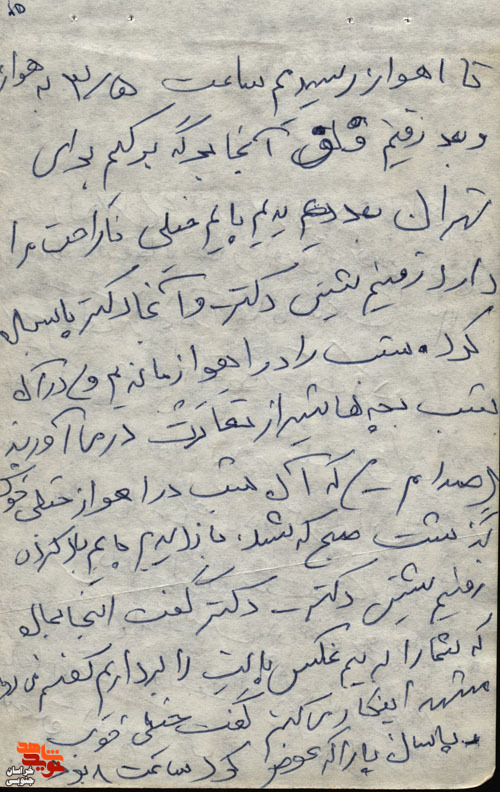 تا اهواز رسیدیم ساعت ۳/۵ به هواز
و بعد رفتیم آنجا برگه بر کنیم برای
تهران بعد دیدیم پایم خیلی ناراحت مرا
دارد رفتیم پیش دکتر و آنجا دکتر پانسمان
کرد. شب را در اهواز ماندیم و در آن
شب بچه‌ها شیراز در ما آورند
(صدام –) که آن شب در اهواز خیلی خوش
گذشت صبح که شد، باز دیدیم پایم
رفتیم پیش دکتر – دکتر گفت اینجا محال
که شما را ببریم عکس پایت را برداریم گفتم می‌رود
مشهد اینکار را می‌کنم گفت خیلی خوب
پانسمان پا را که عوض کرد ساعت ۸ بود
شاهد
خراسان جنوبی